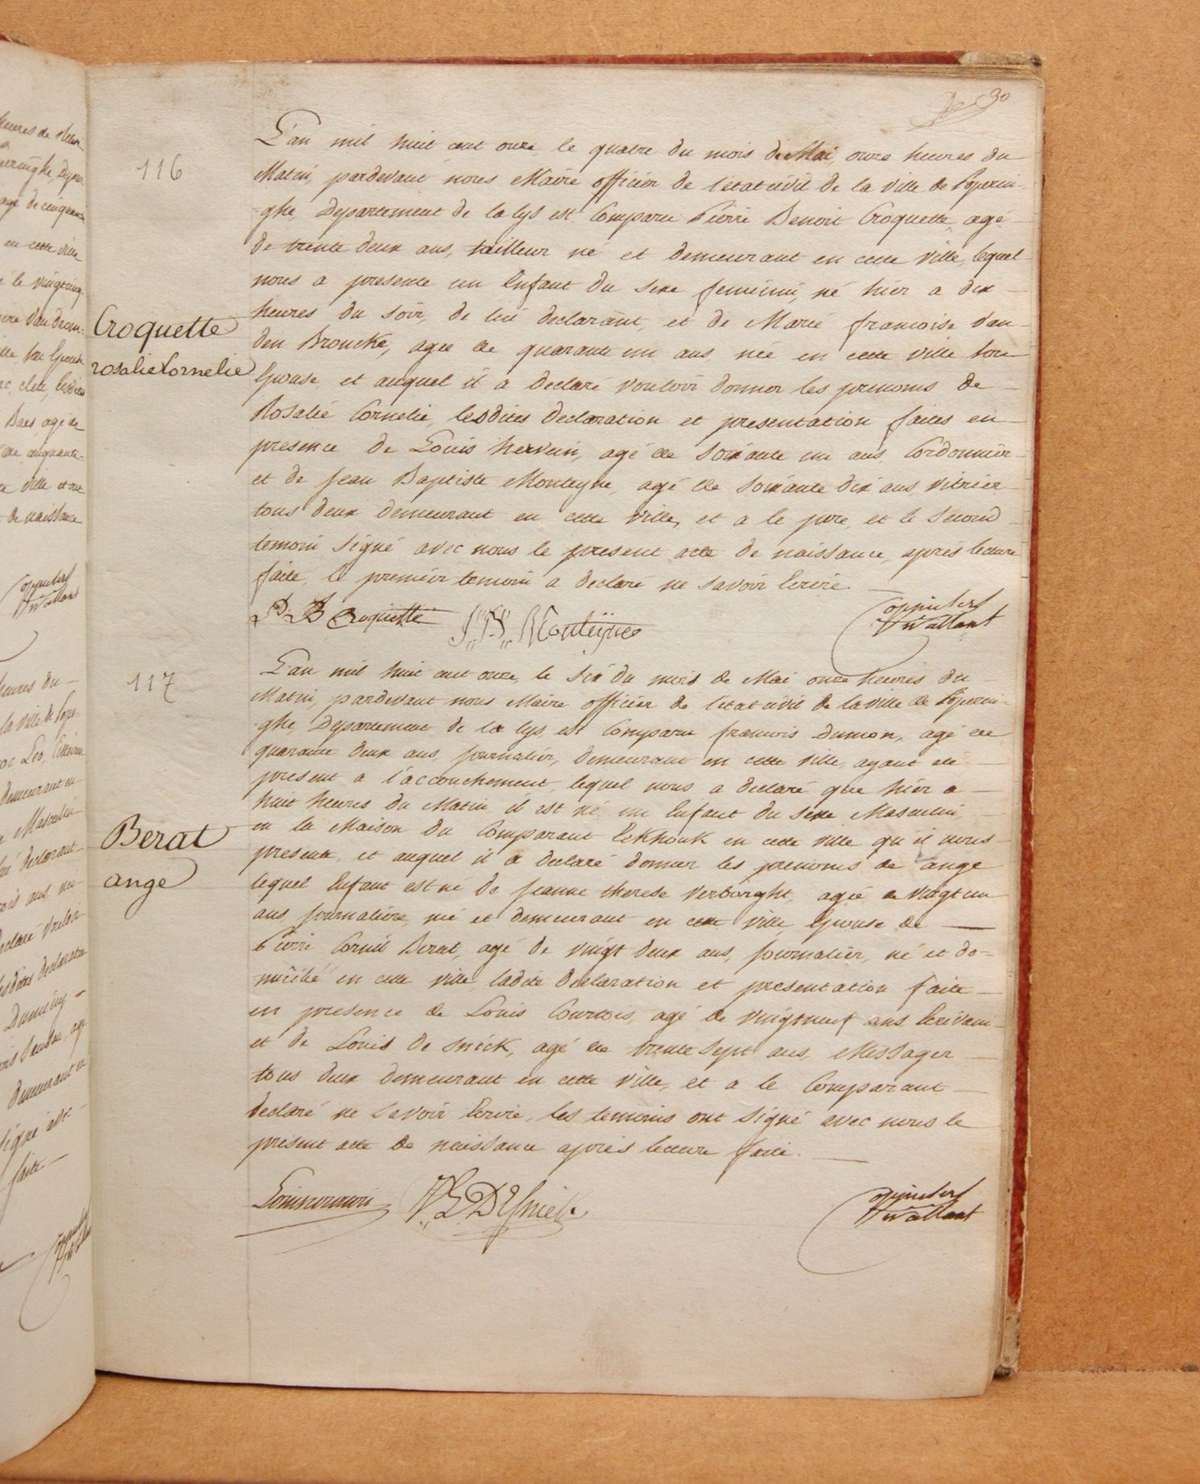 30
116
L'an mil huit cent onze, le quatre du mois de Mai, onze heures du
Matin, pardevant nous Maire officier de l'état civil de la ville de Poperin-
ghe, Département de la Lys est Comparu Pierre Benoit Croquette, agé
de trente deux ans, tailleur né et demeurant en cette ville, lequel
nous a presenté un Enfant du sexe feminin, né hier a dix
heures du soir, de lui declarant, et de Marie francoise Van-
den Broucke, agée de quarante un ans née en cette ville son
Epouse et auquel il a declaré vouloir donner les prenoms de
Rosalie Cornelie, lesdites declaration et presentation faites en
presence de Louis hervein, agé de soixante un ans Cordonnier
et de Jean Baptiste Monteyne, agé de soixante dix ans vitrier
tous deux demeurant en cette ville, et a le pere, et le second
temoin signé avec nous le present acte de naissance, après lecture
faite, le premier temoin a declaré ne savoir Ecrire
Croquette
rosalie Cornelie
P B Croquette J,, B,, Monteyne
117
L'an mil huit cent onze, le six du mois de Mai onze heures du
Matin, pardevant nous Maire officier de l'état civil de la ville de Poperin-
ghe, Département de la Lys, est Comparu francois Dumon, agé de
quarante deux ans, journalier, demeurant en cette ville, ayant eté
present a l'accouchement, lequel nous a declaré que hier a
huit heures du Matin il est né un Enfant du sexe Masculin
en la Maison du Comparant Eekhouk en cette ville qu'il nous
presente, et auquel il a declaré donner les prenoms de ange
lequel Enfant est né de Jeanne therese Verborght, agée de vingt un
ans, journaliere, né et demeurant en cette ville Epouse de
Pierre Cornil Berat, agé de vingt deux ans, journalier, né et do-
micilié en cette ville, ladite declaration et presentation faite
en presence de Louis Courtois, agé de vingtneuf ans Ecrivain
et de Louis de snick, agé de trente sept ans, Messager
tous deux demeurant en cette ville, et a le Comparant
declaré ne savoir Ecrire, les temoins ont signé avec nous le
present acte de naissance après lecture faite.
Berat
ange